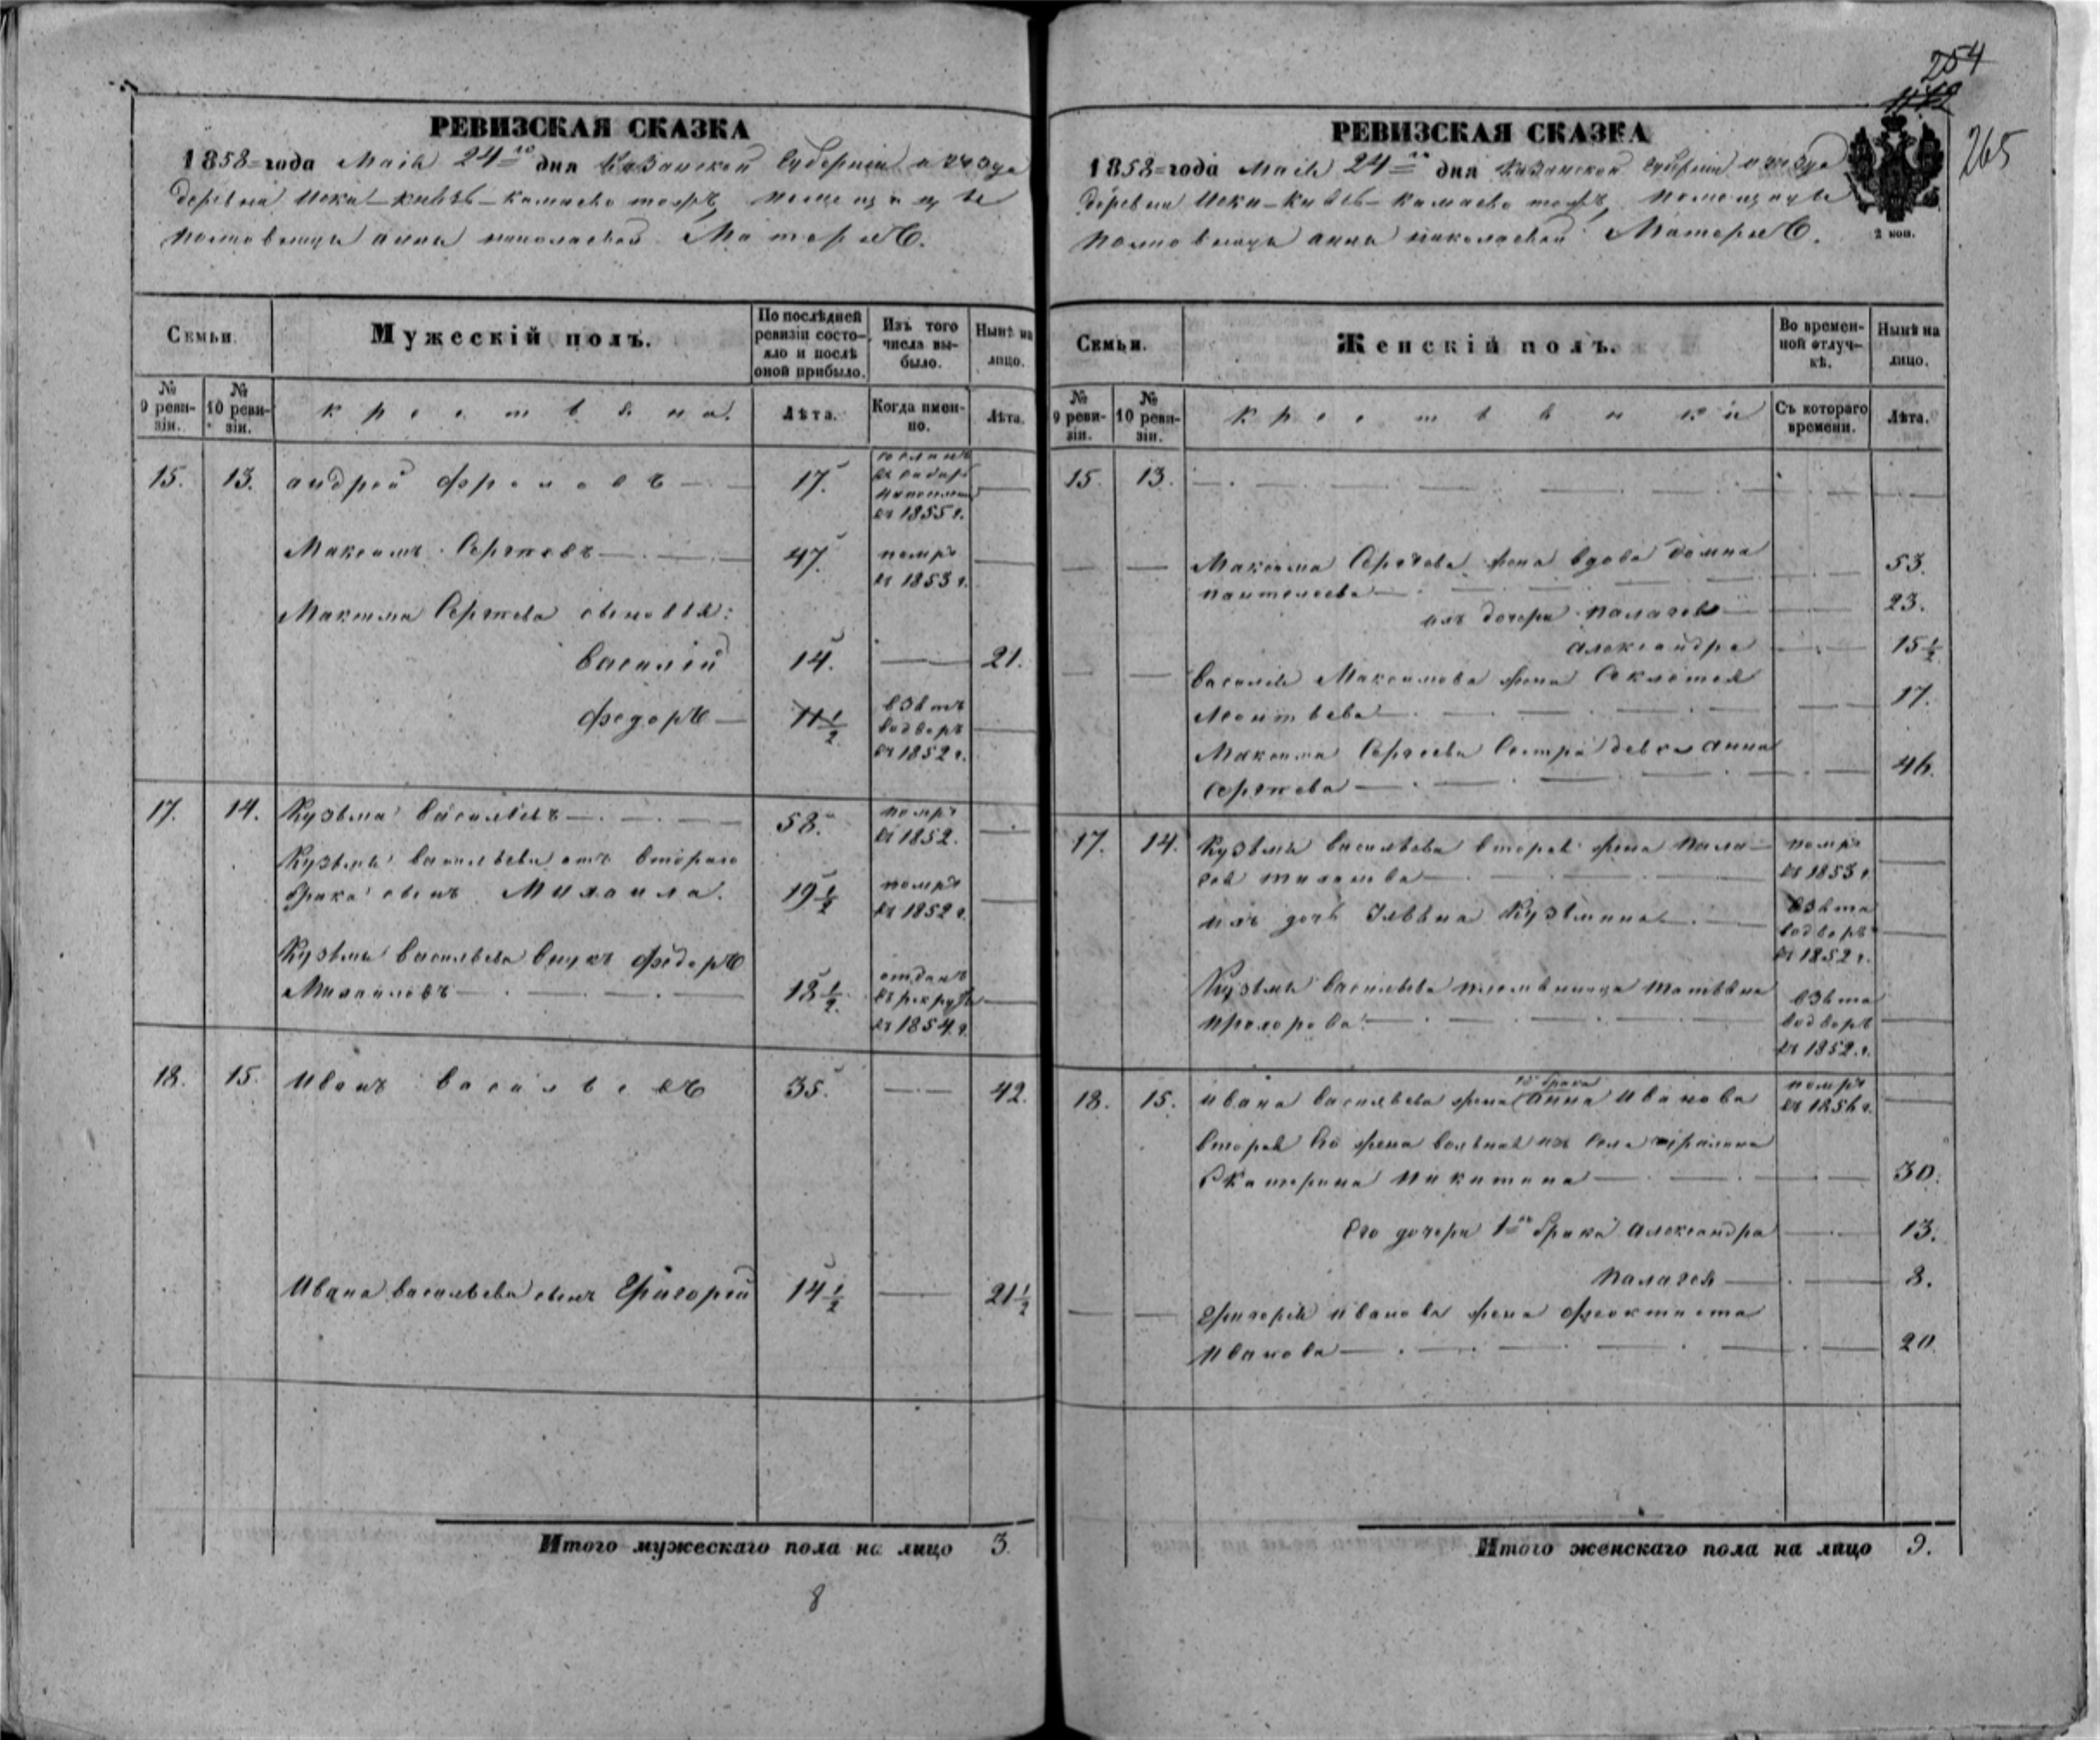 254
265
РЕВИЗСКАЯ СКАЗКА
1858 года Маія 24го дня Казанской Губерніи
деревни Иски-Князь-Камаево тожъ, помещицы
Анны Николаевой
Семьи. Мужескій полъ. По послѣдней ревизіи состояло и послѣ оной прибыло. Изъ того числа выбыло. Нынѣ на лицо.
№ 9 ревизіи. № 10 ревизіи. крестьяна. Лѣта. Когда именно. Лѣта.
15. 13. андрей Фроловъ 17. сосланъ въ сибирь въ 1855 г.
Максимъ Сергѣевъ 47. помръ въ 1853 г.
Максима Сергѣева сыновья:
василій 14. 21.
Федоръ 11 1/2 взятъ во дворъ въ 1852 г.
17. 14. Кузьма васильевъ 58. помръ въ 1852.
Кузьмы васильева отъ втораго
брака сынъ Михаила. 19 1/2 помръ въ 1852 г.
Кузьмы васильева внукъ Федоръ
Михайловъ 18 1/2. отданъ въ рекруты въ 1854 г.
18. 15. Иванъ васильевъ 35. 42.
Ивана васильева сынъ Григорей 14 1/2 21 1/2
Итого мужескаго пола на лицо 3.
8
РЕВИЗСКАЯ СКАЗКА
1858 года Маія 24го дня Казанской губерніи
деревни Иски-Князь-Камаево тожъ, помещицы
Анны Николаевой
2 коп.
Семьи. Женскій полъ. Во временной отлучкѣ. Нынѣ на лицо.
№ 9 ревизіи. № 10 ревизіи. крестьянки Съ котораго времени. Лѣта.
15. 13.
Максима Сергѣева жена вдова домна 53.
пантелеева
ихъ дочери Палагея 23.
александра 15 1/2
василія Максимова жена Секлетея
Леонтьева 17.
Максима Сергѣева Сестра девка анна
Сергѣева 46.
17. 14. Кузьмы васильева вторая жена Палагея помръ въ 1853 г.
ихъ дочь Ульяна Кузьмина взята во дворъ въ 1852 г.
Кузьмы васильева племянница Татьяна
прохорова взята во дворъ въ 1852 г.
18. 15. Ивана васильева жена 1го брака анна Иванова помръ въ 1856 г.
вторая его жена вольная изъ села
Екатерина Никитина 30.
его дочери 1го брака александра 13.
Палагея 8.
Григорея Иванова жена Феоктиста
Иванова 20.
Итого женскаго пола на лицо 9.